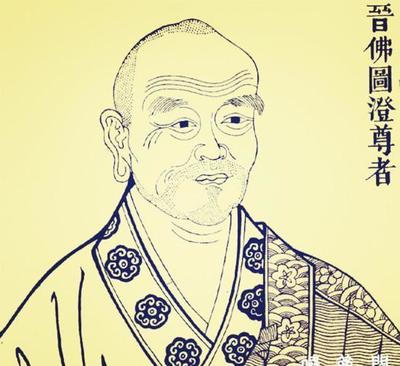 晉佛圖澄尊者